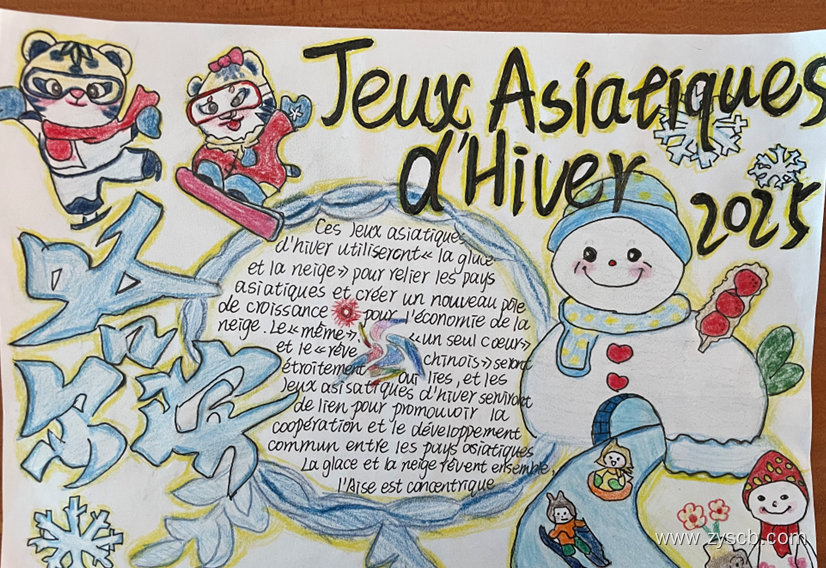 Jeux Asiatiques
d'Hiver
2025
Ces Jeux asiatiques
d'hiver utiliseront « la glace
et la neige » pour relier les pays
asiatiques et créer un nouveau pôle
de croissance pour l'économie de la
neige. Le « même », « un seul cœur »
et le « rêve chinois » seront
étroitement oui liés, et les
Jeux asisatiques d'hiver serviront
de lien pour promouvoir la
coopération et le développement
commun entre les pays asiatiques
La glace et la neige rêvent ensemble,
l'Aise est concentrique
www.zyscb.com